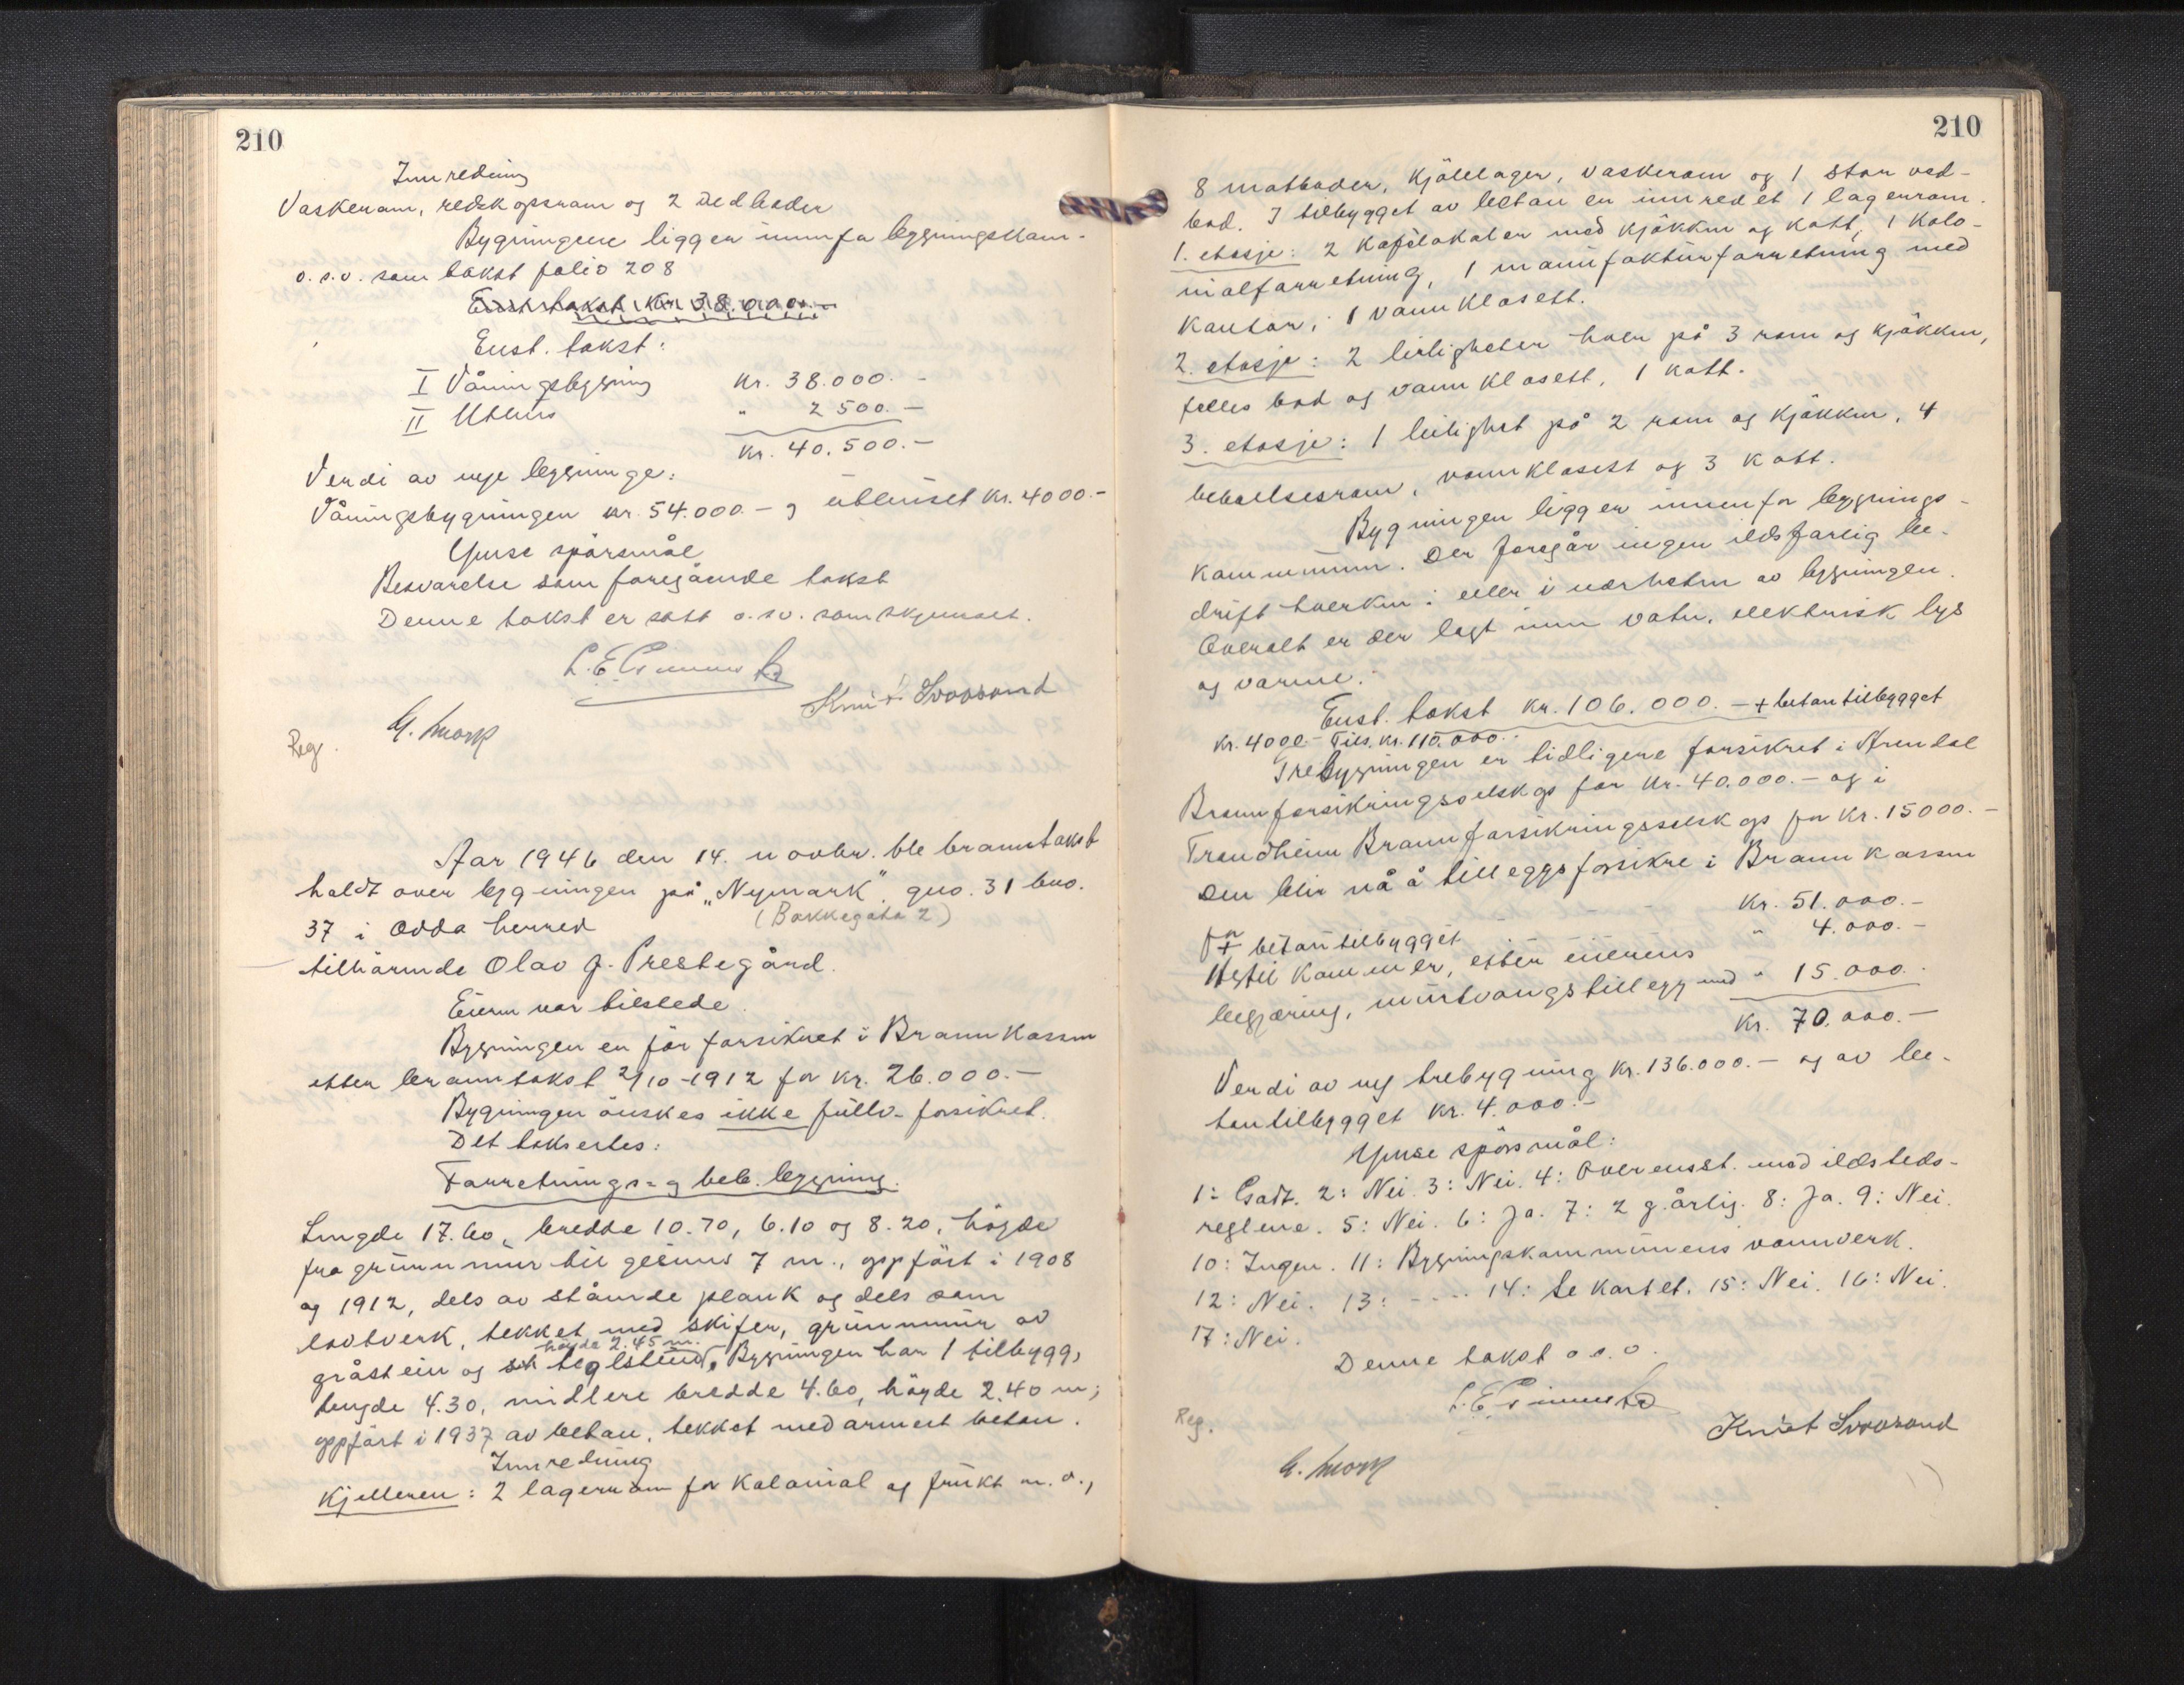 210
Innredning
Vaskerom, redskapsrom og 2 vedboder
Bygningene ligger innenfor bygningskom-
o.s.v. som takst folio 208
Enst. takst kr. 38.000.-
Enst. takst:
I Våningsbygning kr. 38.000.-
II Uthus " 2 500.-
kr. 40.500.-
Verdi av nye bygninger:
Våningsbygningen kr. 54.000.- og uthuset kr. 4000.-
Ymse spörsmål
Besvarelse som foregående takst
Denne takst er satt o.s.v. som skjönnet.
Knut Svoosand
G. Mork
Reg.
Aar 1946 den 14. novbr. ble branntakst
holdt over bygningen på "Nymark", gno. 31 bno.
37 i Odda herred (Bakkegata 2)
tilhörende Olav J. Prestegård.
Eieren var tilstede.
Bygningen er för forsikret i Brannkassen
etter branntakst 2/10-1912 for kr. 26.000.-
Bygningen önskes ikke fullv. forsikret.
Det takseres:
Forretnings- og beb. bygning.
Lengde 17.60, bredde 10.70, 6.10 og 8.20, höyde
fra grunnmur til gesims 7 m., oppfört i 1908
og 1912, dels av stående plank og dels som
lovtverk, tekket med skifer, grunnmur av
höyde 2.45 m.
gråstein og teglstein. Bygningen har 1 tilbygg,
lengde 4.30, midlere bredde 4.60, höyde 2.40 m;
oppfört i 1937 av betong, tekket med armert betong.
Innredning
Kjelleren: 2 lagerrom for kolonial og frukt m.v.,
210
8 matboder, kjölelager, vaskerom og 1 stor ved-
bod. I tilbygget av betong er innredet 1 lagerrom.
1. etasje: 2 kafélokaler med kjökken og kott, 1 kolo-
nialforretning, 1 manufakturforretning med
kontor, 1 vannklosett.
2. etasje: 2 leiligheter hver på 3 rom og kjökken,
felles bad og vannklosett, 1 kott.
3. etasje: 1 leilighet på 2 rom og kjökken, 4
beboelsesrom, vannklosett og 3 kott.
Bygningen ligger innenfor bygnings-
kommunen. Der foregår ingen ildsfarlig be-
drift hverken i eller i nærheten av bygningen.
Overalt er der lagt inn vatn, elektrisk lys
og varme.
Enst. takst kr. 106.000.- + betongtilbygget
kr. 4000.- Tils. kr. 110.000.-
Trebygningen er tidligere forsikret i Arendal
Brannforsikringsselskap for kr. 40.000.- og i
Trondheim Brannforsikringsselskap for kr. 15000.-
Den blir nå å tilleggsforsikre i Brannkassen
for kr. 51.000.-
+ betongtilbygget " 4.000.-
Hertil kommer, etter eierens
begjæring, murtvangstillegg med " 15.000.-
kr. 70.000.-
Verdi av ny trebygning kr. 136.000.- og av be-
tongtilbygget kr. 4.000.-
Ymse spörsmål:
1: Godt. 2: Nei. 3: Nei. 4: Overensst. med ildsteds-
reglene. 5: Nei. 6: Ja. 7: 2 g. årlig. 8: Ja. 9: Nei.
10: Ingen. 11: Bygningskommunens vannverk.
12: Nei. 13: ---- 14: Se kartet. 15: Nei. 16: Nei.
17: Nei.
Denne takst o.s.v.
Knut Svoosand
Reg.
G. Mork